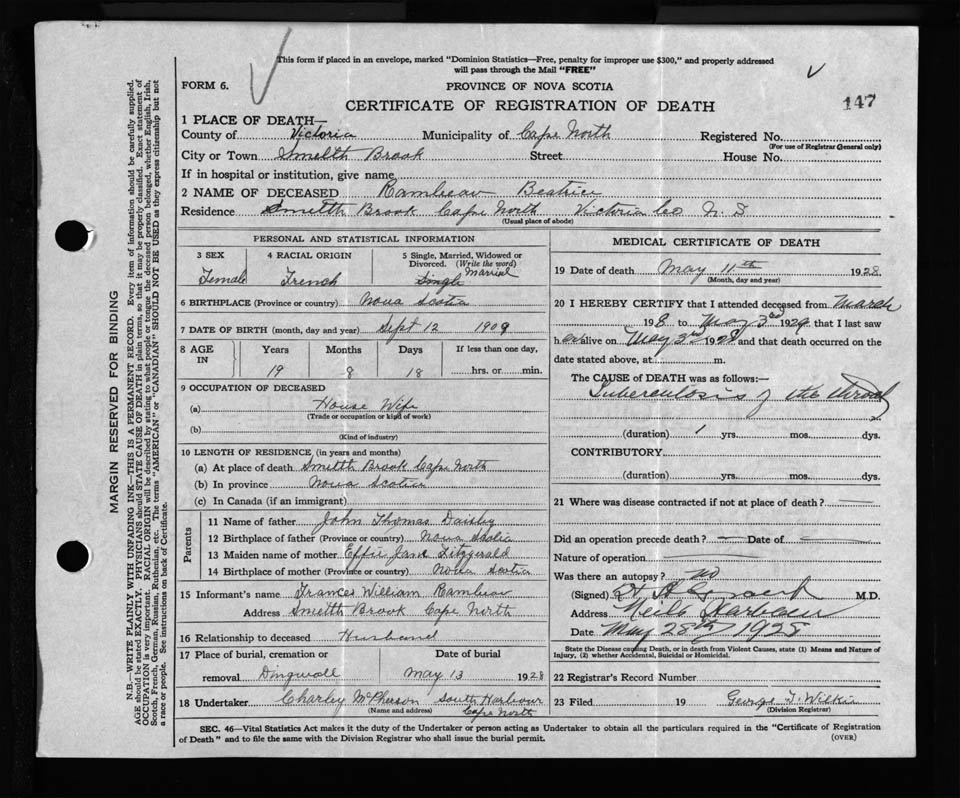 This form if placed in an envelope, marked "Dominion Statistics—Free, penalty for improper use $300," and properly addressed
will pass through the Mail "FREE"
FORM 6.
PROVINCE OF NOVA SCOTIA
147
CERTIFICATE OF REGISTRATION OF DEATH
1 PLACE OF DEATH—
County of Victoria Municipality of Cape North Registered No.
(For use of Registrar General only)
City or Town Smelth Brook Street House No.
If in hospital or institution, give name
2 NAME OF DECEASED Rambeau Beatrice
Residence Smelth Brook Cape North Victoria Co N. S
(Usual place of abode)
PERSONAL AND STATISTICAL INFORMATION
3 SEX 4 RACIAL ORIGIN 5 Single, Married, Widowed or
Divorced. (Write the word)
Female French Single Married
6 BIRTHPLACE (Province or country) Nova Scotia
7 DATE OF BIRTH (month, day and year) Sept 12 1909
8 AGE IN Years Months Days If less than one day,
19 8 18 hrs. or min.
9 OCCUPATION OF DECEASED
(a) House Wife
(Trade or occupation or kind of work)
(b)
(Kind of industry)
10 LENGTH OF RESIDENCE (in years and months)
(a) At place of death Smelth Brook Cape North
(b) In province Nova Scotia
(c) In Canada (if an immigrant)
Parents
11 Name of father John Thomas Daisley
12 Birthplace of father (Province or country) Nova Scotia
13 Maiden name of mother Effie Jane Fitzgerald
14 Birthplace of mother (Province or country) Nova Scotia
15 Informant's name Frances William Rambeau
Address Smelth Brook Cape North
16 Relationship to deceased Husband
17 Place of burial, cremation or Date of burial
removal Dingwall May 13 1928
18 Undertaker Charley McPherson South Harbour
(Name and address) Cape North
MEDICAL CERTIFICATE OF DEATH
19 Date of death May 11th 1928
(Month, day and year)
20 I HEREBY CERTIFY that I attended deceased from March
198 to May 3rd 1929 that I last saw
h er alive on May 3rd 1928 and that death occurred on the
date stated above, at m.
The CAUSE of DEATH was as follows:—
Tuberculosis of the throat
(duration) 1 yrs. mos. dys.
CONTRIBUTORY
(duration) yrs. mos. dys.
21 Where was disease contracted if not at place of death?
Did an operation precede death? Date of
Nature of operation
Was there an autopsy? no
(Signed) M.D.
Address Neils Harbour
Date May 28th 1928
State the Disease causing Death, or in death from Violent Causes, state (1) Means and Nature of
Injury, (2) whether Accidental, Suicidal or Homicidal.
22 Registrar's Record Number
23 Filed 19 George T. Wilkie
(Division Registrar)
SEC. 46—Vital Statistics Act makes it the duty of the Undertaker or person acting as Undertaker to obtain all the particulars required in the "Certificate of Registration
of Death" and to file the same with the Division Registrar who shall issue the burial permit.
(OVER)
MARGIN RESERVED FOR BINDING
N.B.—WRITE PLAINLY WITH UNFADING INK—THIS IS A PERMANENT RECORD. Every item of information should be carefully supplied.
AGE should be stated EXACTLY. PHYSICIANS should STATE CAUSE OF DEATH in plain terms, so that it may be properly classified. Exact statement of
OCCUPATION is very important. RACIAL ORIGIN will be described by stating to what people or tongue the deceased person belonged, whether English, Irish,
Scotch, French, German, Russian, Ruthenian, etc. The terms "AMERICAN" or "CANADIAN" SHOULD NOT BE USED as they express citizenship but not
a race or people. See instructions on back of Certificate.